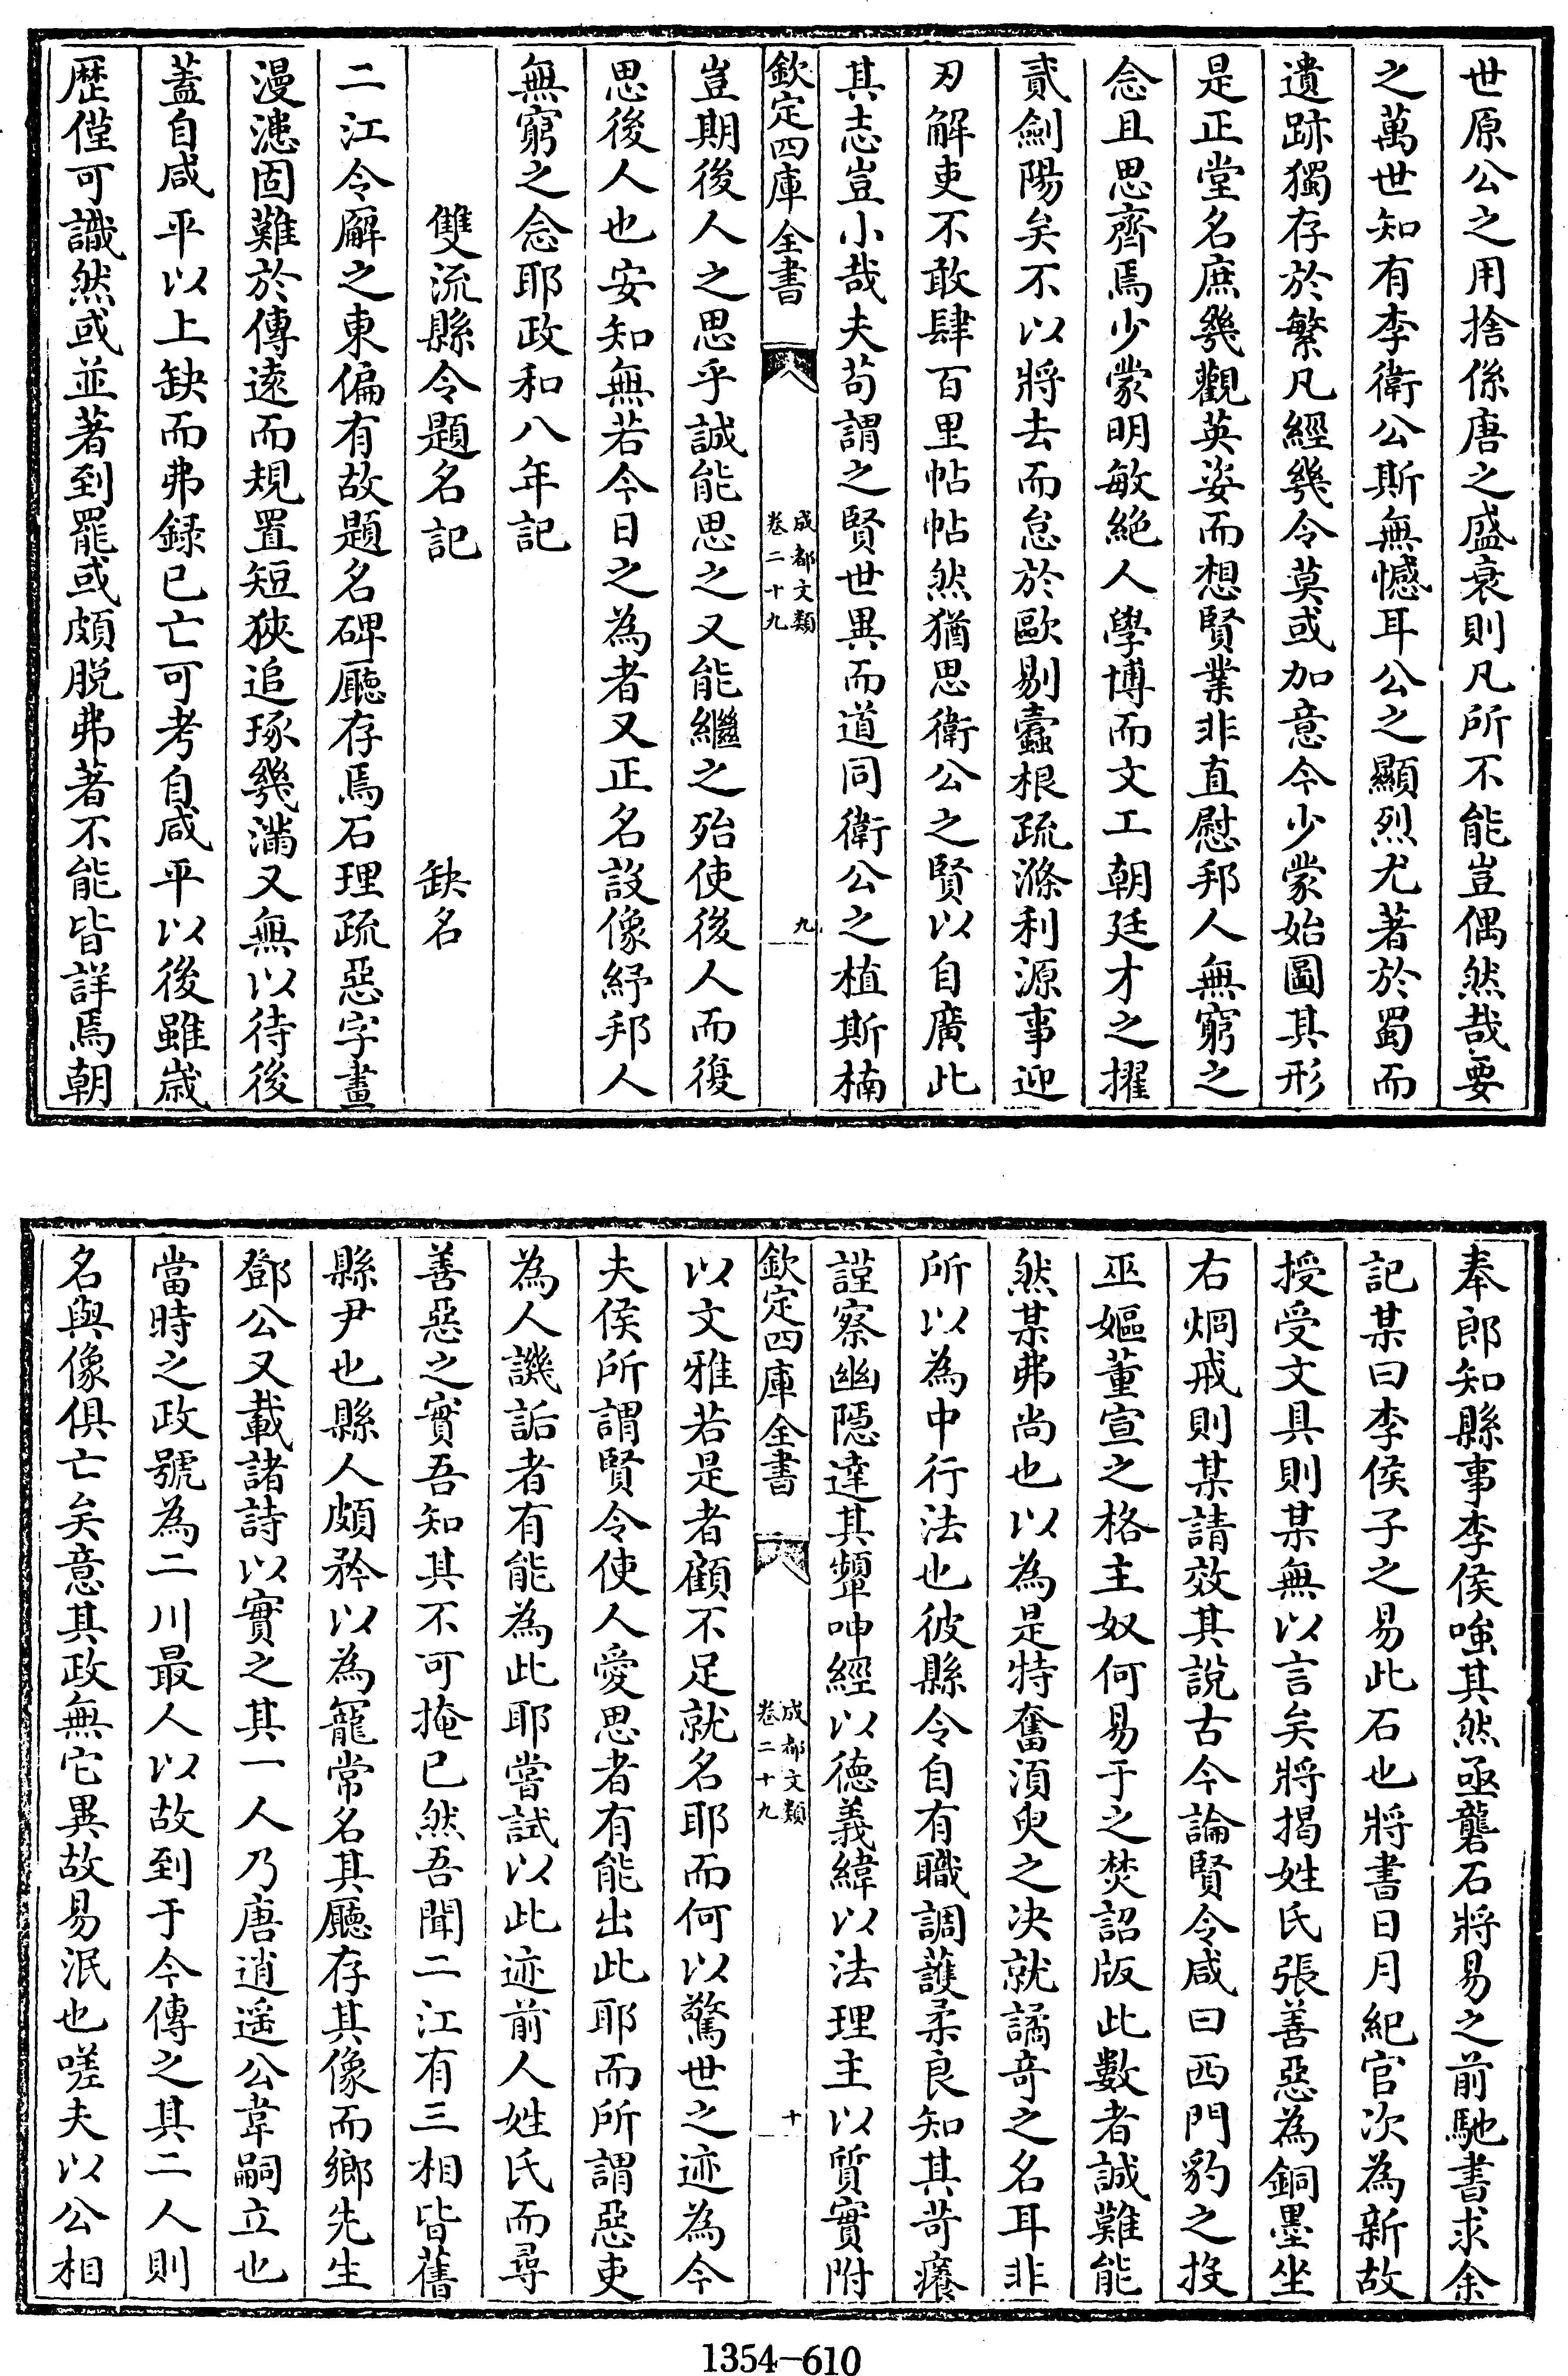 世原公之用捨係唐之盛衰則凡所不能豈偶然哉要
之萬世知有李衛公斯無憾耳公之顯烈尤著於蜀而
遺跡獨存於繁凡經幾令莫或加意今少蒙始圖其形
是正堂名庶幾觀英姿而想賢業非直慰邦人無窮之
念且思齊焉少蒙明敏絶人學博而文工朝廷才之擢
貳劍陽矣不以將去而怠於歐剔蠹根疏滌利源事迎
刃解吏不敢肆百里帖帖然猶思衛公之賢以自廣此
其志豈小哉夫苟謂之賢世異而道同衛公之植斯楠
欽定四庫全書
成都文類
卷二十九
九
豈期後人之思乎誠能思之又能繼之殆使後人而復
思後人也安知無若今日之為者又正名設像紓邦人
無窮之念耶政和八年記
雙流縣令題名記 缺名
二江令廨之東偏有故題名碑廳存焉石理疏惡字畫
漫漶固難於傳遠而規置短狹追琢幾滿又無以待後
蓋自咸平以上缺而弗録已亡可考自咸平以後雖歲
歷僅可識然或並著到罷或頗脱弗著不能皆詳焉朝
奉郎知縣事李侯嗤其然亟礱石將易之前馳書求余
記某曰李侯子之易此石也將書日月紀官次為新故
授受文具則某無以言矣將揭姓氏張善惡為銅墨坐
右烱戒則某請效其説古今論賢令咸曰西門豹之投
巫嫗董宣之格主奴何易于之焚詔版此數者誠難能
然某弗尚也以為是特奮湏臾之决就譎竒之名耳非
所以為中行法也彼縣令自有職調護柔良知其苛癢
謹察幽隱達其顰呻經以德義緯以法理主以質實附
欽定四庫全書
成都文類
卷二十九
十
以文雅若是者顧不足就名耶而何以驚世之迹為今
夫侯所謂賢令使人愛思者有能出此耶而所謂惡吏
為人譏詬者有能為此耶嘗試以此迹前人姓氏而尋
善惡之實吾知其不可掩已然吾聞二江有三相皆舊
縣尹也縣人頗矜以為寵常名其廳存其像而鄉先生
鄧公又載諸詩以實之其一人乃唐逍遥公韋嗣立也
當時之政號為二川最人以故到于今傳之其二人則
名與像俱亡矣意其政無它異故易泯也嗟夫以公相
1354-610